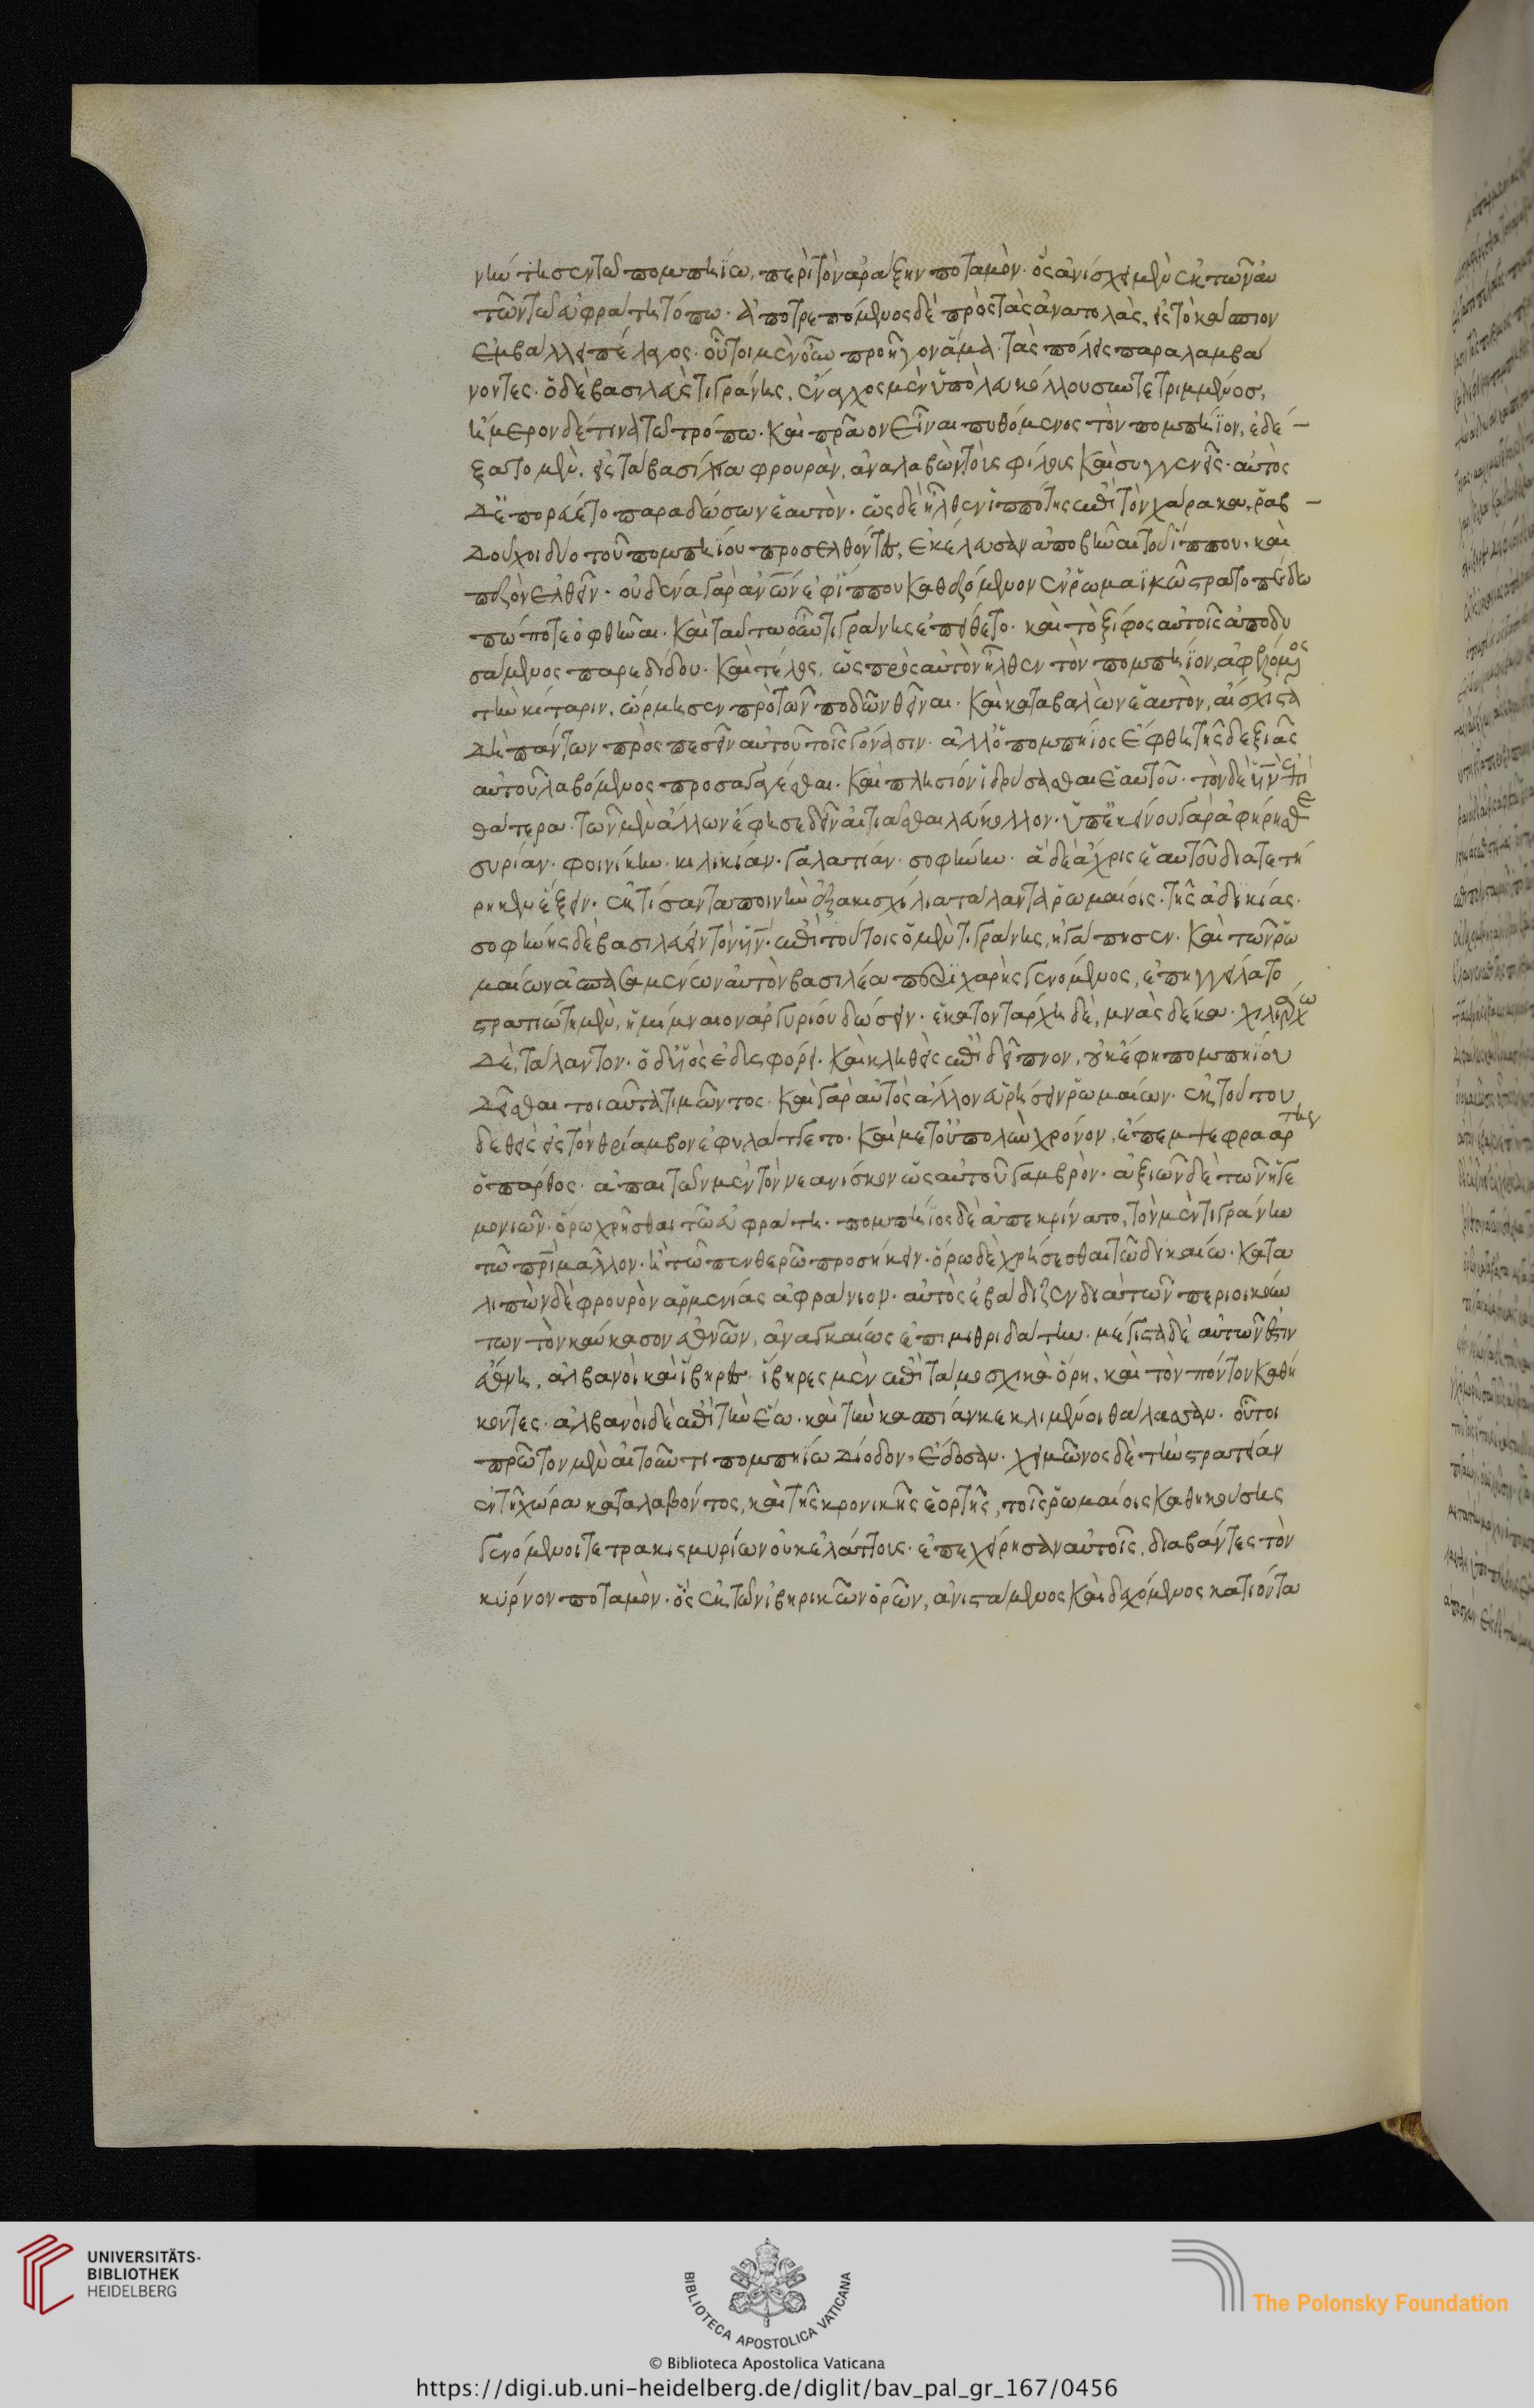 νήντησεν τῶ πομπηίω, περὶ τὸν ἀράξην ποταμὸν· ὃς ἀνίσχει μὲν ἐκ τῶν αὐ
τῶν τῶ εὐφράτη τόπω· ἀποτρεπόμενος δὲ πρὸς τὰς ἀνατολὰς, εἰς τὸ κάσπιον
ἐμβάλλει πέλαγος· οὗτοι μὲν οὖν προῆγον ἅμα· τὰς πόλεις παραλαμβά
νοντες· ὁ δὲ βασιλεὺς τιγράνης, ἔναγχος μὲν ὑπὸ λευκόλλου συντετριμμένος,
ἥμερον δέ τινα τῶ τρόπω· καὶ πρᾶον εἶναι πυθόμενος τὸν πομπήϊον, ἐδέ-
ξατο μὲν, εἰς τὰ βασίλεια φρουρὰν, ἀναλαβὼν τοὺς φίλους καὶ συγγενεῖς· αὐτὸς
δὲ πορεύετο παραδώσων ἑαυτὸν· ὡς δὲ ἦλθεν ἱππότης ἐπὶ τὸν χάρακα, ῥαβ-
δοῦχοι δύο τοῦ πομπηίου προσελθόντες, ἐκέλευσαν ἀποβῆναι τοῦ ἵππου· καὶ
πεζὸν ἐλθεῖν· οὐδένα γὰρ ἀνῶν ἐφ' ἵππου καθεζόμενον ἐν ῥωμαϊκῶ στρατοπέδω
πώποτε ὀφθῆναι· καὶ ταῦτα οὖν τιγράνης ἐπείθετο· καὶ τὸ ξίφος αὐτοῖς ἀποδυ
σάμενος παρεδίδου· καὶ τέλος, ὡς πρὸς αὐτὸν ἦλθεν τὸν πομπήϊον, ἀφελόμενος
τὴν κίταριν, ὥρμησεν πρὸ τῶν ποδῶν θεῖναι· καὶ καταβαλὼν ἑαυτὸν, αἴσχιστα
δὴ πάντων πρὸς πεσεῖν αὐτοῦ τοῖς γόνασιν· ἀλλ' ὁ πομπήιος ἔφθη τῆς δεξιᾶς
αὐτοῦ λαβόμενος προσαγαγέσθαι· καὶ πλησίον ἱδρύσασθαι ἑαυτοῦ· τὸν δὲ υἱὸν ἐπὶ
θάτερα· τῶν μὲν ἄλλων ἔφησε δεῖν αἰτιᾶσθαι λεύκολλον· ὑπ' ἐκείνου γὰρ ἀφηρῆσθαι
συρίαν· φοινίκην· κιλικίαν· γαλατίαν· σοφηνὴν· ἃ δὲ ἄχρις ἑαυτοῦ διατετή
ρηκεν ἕξειν· ἐκτίσαντα ποινὴν ἑξακισχίλια τάλαντα ῥωμαίοις· τῆς ἀδικίας·
σοφηνῆς δὲ βασιλεύειν τὸν υἱόν· ἐπὶ τούτοις ὁ μὲν τιγράνης, ἠγάπησεν· καὶ τῶν ῥω
μαίων ἀσπασαμένων αὐτὸν βασιλέα περιχαρὴς γενόμενος, ἐπηγγείλατο
στρατιώτη μὲν, ἡμίμναιον ἀργυρίου δώσειν· ἑκατοντάρχη δὲ, μνᾶς δέκα· χιλιάρχω
δὲ, τάλαντον· ὁ δ' υἱὸς ἐδυσφόρει· καὶ κληθεὶς ἐπὶ δεῖπνον, οὐκ ἔφη πομπηΐου
δεῖσθαι τοιαῦτα τιμῶντος· καὶ γὰρ αὐτὸς ἄλλον εὑρήσειν ῥωμαίων· ἐκ τούτου
δεθεὶς εἰς τὸν θρίαμβον ἐφυλάττετο· καὶ μετ' οὐ πολὺν χρόνον, ἔπεμψε φραάρτης
ὁ πάρθος· ἀπαιτῶν μὲν τὸν νεανίσκον ὡς αὐτοῦ γαμβρὸν· ἀξιῶν δὲ τῶν ἡγε
μονιῶν· ὅρω χρῆσθαι τῶ εὐφράτη· πομπήϊος δὲ ἀπεκρίνατο, τὸν μὲν τιγράνην
τῶ πρὶ μᾶλλον· ἢ τῶ πενθερῶ προσήκειν· ὅρω δὲ χρήσεσθαι τῶ δικαίω· κατα
λιπὼν δὲ φρουρὸν ἀρμενίας ἀφράνιον· αὐτὸς ἐβάδιζεν διὰ τῶν περιοικούν
των τὸν καύκασον ἐθνῶν, ἀναγκαίως ἐπὶ μιθριδάτην· μέγιστα δὲ αὐτῶν ἐστιν
ἔθνη, ἀλβανοὶ καὶ ἴβηρες· ἴβηρες μὲν ἐπὶ τὰ μοσχικὰ ὄρη, καὶ τὸν πόντον καθή
κοντες· ἀλβανοὶ δὲ ἐπὶ τὴν ἕω· καὶ τὴν κασπίαν κεκλιμένοι θάλασσαν· οὗτοι
πρῶτον μὲν αἰτοῦντι πομπηίω δίοδον· ἔδοσαν· χειμῶνος δὲ τὴν στρατείαν
ἐν τῆ χώρα καταλαβόντος, καὶ τῆς κρονικῆς ἑορτῆς, τοῖς ῥωμαίοις καθηκούσης
γενόμενοι τετρακισμυρίων οὐκ ἐλάττους· ἐπεχείρησαν αὐτοῖς, διαβάντες τὸν
κύρνον ποταμὸν· ὃς ἐκ τῶν ἰβηρικῶν ὀρῶν, ἀνιστάμενος καὶ δεχόμενος κατιόντα
UNIVERSITÄTS-
BIBLIOTHEK
HEIDELBERG
BIBLIOTECA APOSTOLICA VATICANA
The Polonsky Foundation
© Biblioteca Apostolica Vaticana
https://digi.ub.uni-heidelberg.de/diglit/bav_pal_gr_167/0456